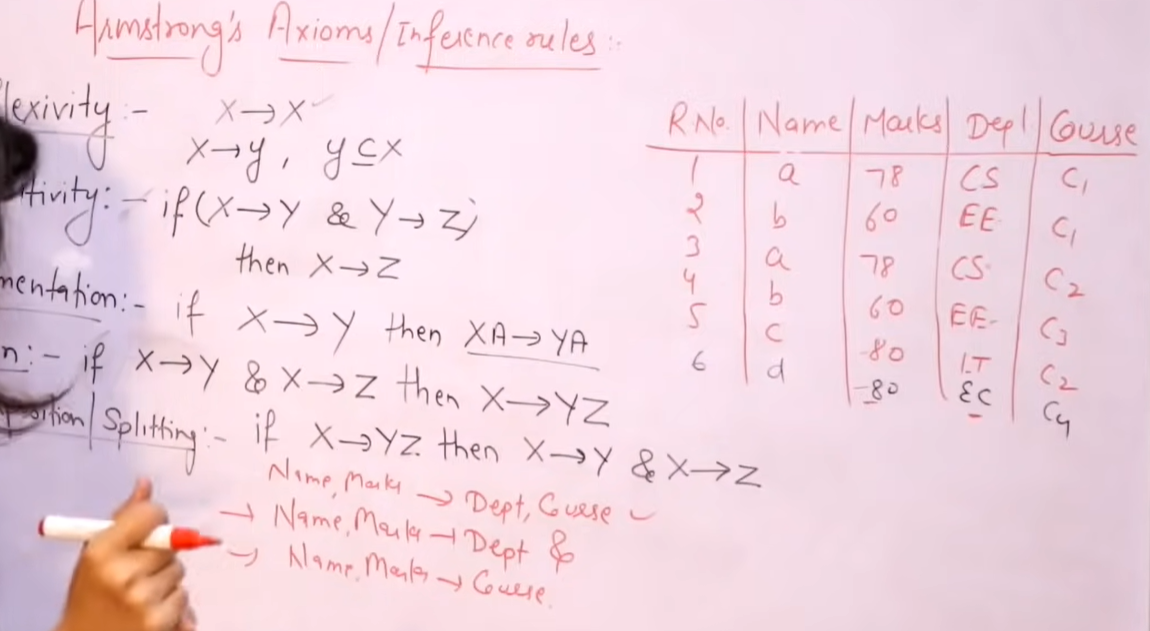 Armstrong's Axioms/Inference rules :-
lexivity :- X→X ✓
X→y, y⊆X
tivity: - if (X→Y & Y→Z)
then X→Z
mentation:- if X→Y then XA→YA
n:- if X→Y & X→Z then X→YZ
osition/Splitting:- if X→YZ then X→Y & X→Z
Name, Marks → Dept, Course ✓
→ Name, Marks → Dept &
→ Name, Marks → Course.
R No. Name Marks Dept Course
1 a 78 CS C1
2 b 60 EE C1
3 a 78 CS C2
4 b 60 EE C3
5 c 80 I.T C2
6 d 80 EC C4